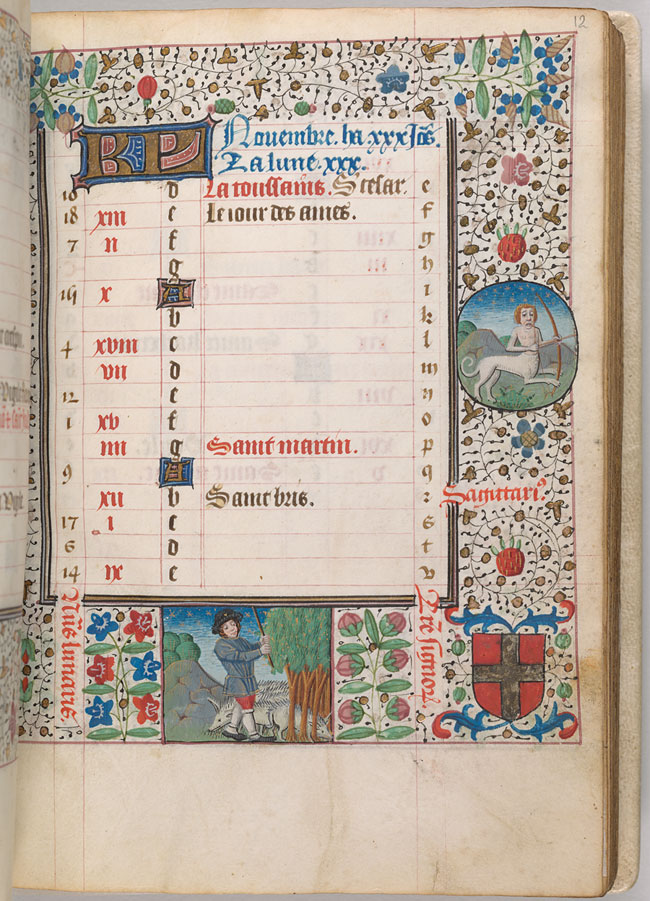 12
KL Nouembre. ha xxx
La lune. xxx.
d La toussains. S cesar. e
18 xiii e Le iour des ames. f
7 ii f g
g h
15 x A i
b k
4 xviii c l
vii d m
12 e n
1 xv f o
iiii g Sainct martin. p
9 A q
xii b Sainct bris. r
17 i c s
6 d t
14 ix e v
Sagittariꝰ